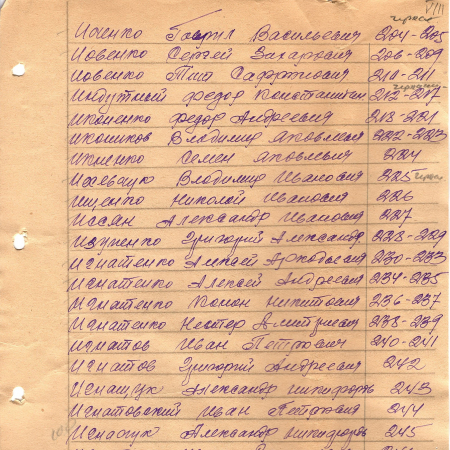 VIII
через
Ионенко Гаврил Васильевич 204-205
Иовенко Сергей Захарович 206-209
Иовенко Тит 210-211
Индутный Федор Константин 212-217
Иконенко Федор Андреевич 218-221
Иконников Владимир Яковлевич 222-223
Икленко Семен Яковлевич 224
Владимир Иванович 225
Ищенко Николай Иванович 226
Иссян Александр Иванович 227
Ищуненко Григорий Александр 228-229
Игнатенко Алексей 230-233
Игнатенко Алексей Андреевич 234-235
Игнатенко Конон Никитович 236-237
Игнатенко Нестер Дмитриевич 238-239
Игнатов Иван Петрович 240-241
Игнатов Григорий Андреевич 242
Игнащук Александр Никифоров 243
Игнатовский Иван Петрович 244
Игнащук Александр Никифоров 245